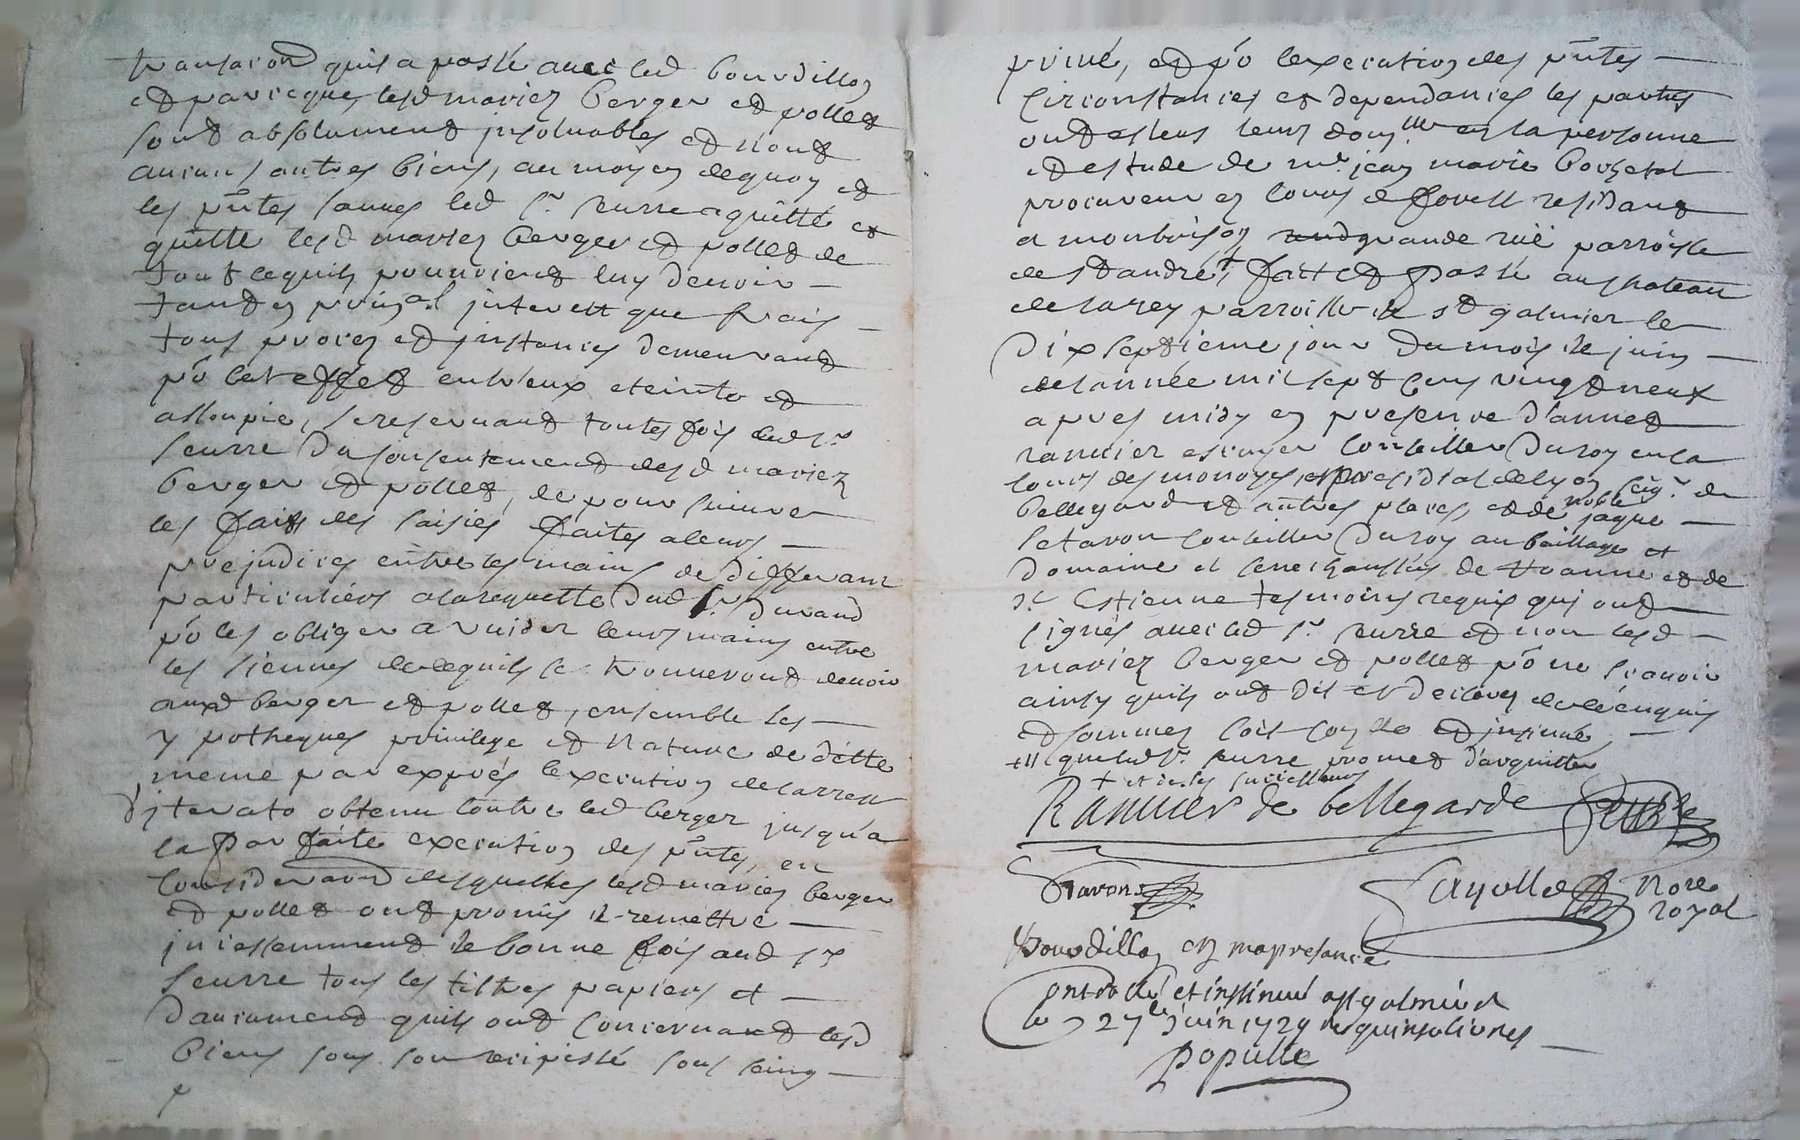 transacon quil a passé avec led bourdillon
et parceque lesd mariez berger et pollet
sont absolument jnsoluables et nont
aucuns autres biens, au moyen dequoy et
les pntes led sr. seurre a quitté et
quitte lesd mariez berger et pollet de
tout cequils pourroient luy devoir
tant en prinpal jnterest que frais
tous proces et jnstances demeurant
po cet effet entreux eteints et
assoupie, se reservant toutes fois led sr.
seurre du consentement desd mariez
berger et pollet, de poursuivre
les fait des saisies faites a leurs
prejudices entre les mains de differant
particuliers a la requette dud sr. durand
po les obliger a vuider leurs mains entre
les siennes de cequils se trouveront devoir
auxd berger et pollet, ensemble les
ypotheques privilege et nature de dette
meme par expres lexecution de larrest
jterato obtenu contre led berger jusqua
la parfaite execution des pntes, en
consideraon desquelles lesd mariez berger
et pollet ont promis de remettre
jncessemment de bonne fois aud sr
seurre tous les tiltres papiers et
documents quils ont concernant lesd
biens sous son recipissé sous seing
privé, et po lexecution des pntes
circonstances et dependances les parties
ont esleus leurs domlle en la personne
et estude de me. jean marie
procureur en cours de forest residant
a montbrison grande rüe parroisse
de st andre, fait et passé au chateau
de parroisse de st galmier le
dixseptieme jour du mois de juin
de lannée mil sept cens vingt neuf
apres midy en presence dannet
ranvier escuyer conseiller du roy en la
cour des monoyes, et presidial de lyon seigr. de
bellegarde et autres places, et de noble jaque
conseiller du roy au baillage et
domaine et senechaussées de roanne et de
st Estienne tesmoins requis qui ont
signés avec led sr. seurre et non lesd
mariez berger et pollet po ne scavoir
ainsy quils ont dit et declaré de ce enquis
et sommes soit et jnsinué
que led sr. seurre promet dacquitter
+ et de ses
Ranvier de bellegarde Seurre
Fayolle Nore
royal
Bourdillon en ma presance
Controllé et insinué a st galmier
le 27e juin 1729 livres
Populle